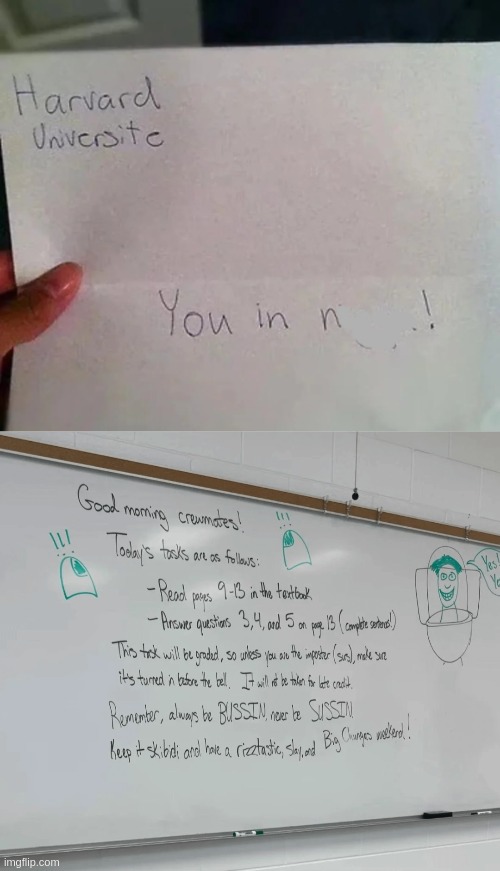 Harvard
Universite
You in n !
Good morning crewmates!
!!!
!!!
Today's tasks are as follows:
- Read pages 9-13 in the textbook
- Answer questions 3,4, and 5 on page 13 (complete sentences!)
This task will be graded, so unless you are the impostor (sus), make sure
it's turned in before the bell. It will not be taken for late credit.
Remember, always be BUSSIN, never be SUSSIN.
Keep it skibidi and have a rizztastic, slay, and Big Chungus weekend!
Yes
imgflip.com